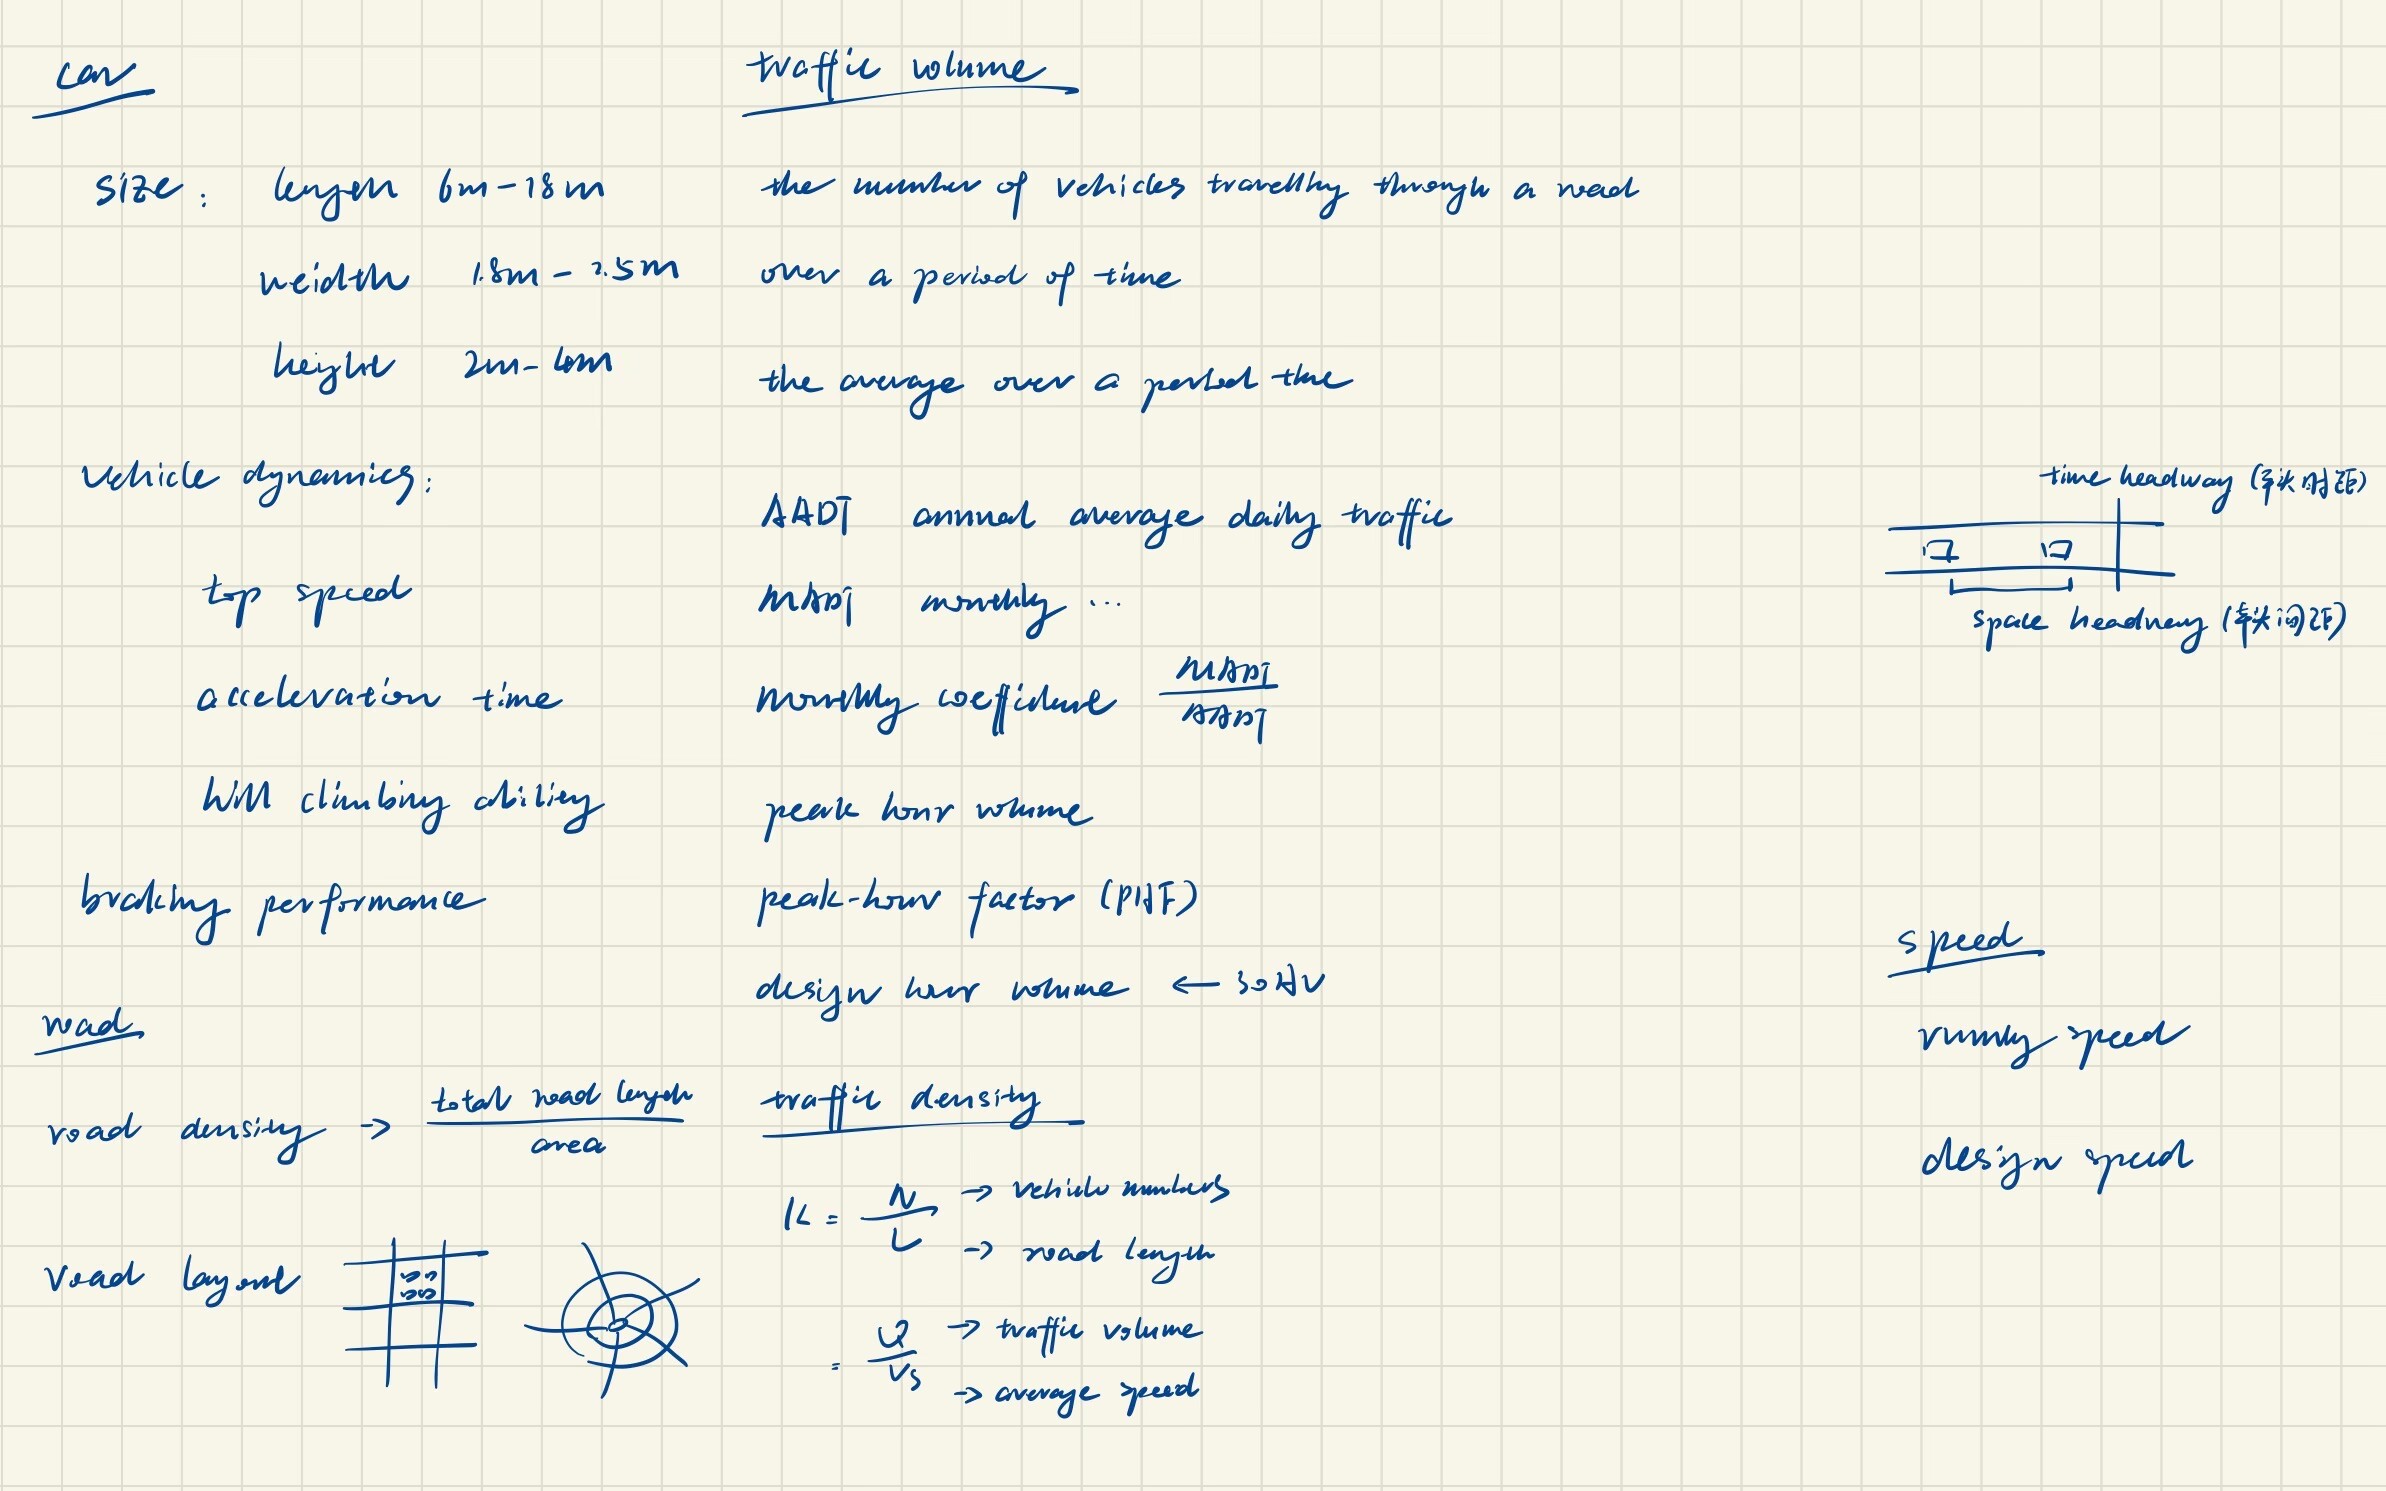 car
size : length 6m-18m
weidth 1.8m - 2.5m
height 2m-4m
vehicle dynamics :
top speed
acceleration time
hill climbing ability
braking performance
road
road density → total road length / area
road layout
traffic volume
the number of vehicles travelling through a road
over a period of time
the average over a period time
AADT annual average daily traffic
MADT monthly ...
monthly coefficient MADT / AADT
peak hour volume
peak-hour factor (PHF)
design hour volume ← 30HV
traffic density
K = N / L → vehicle numbers
→ road length
= Q / Vs → traffic volume
→ average speed
time headway (车头时距)
space headway (车头间距)
speed
running speed
design speed